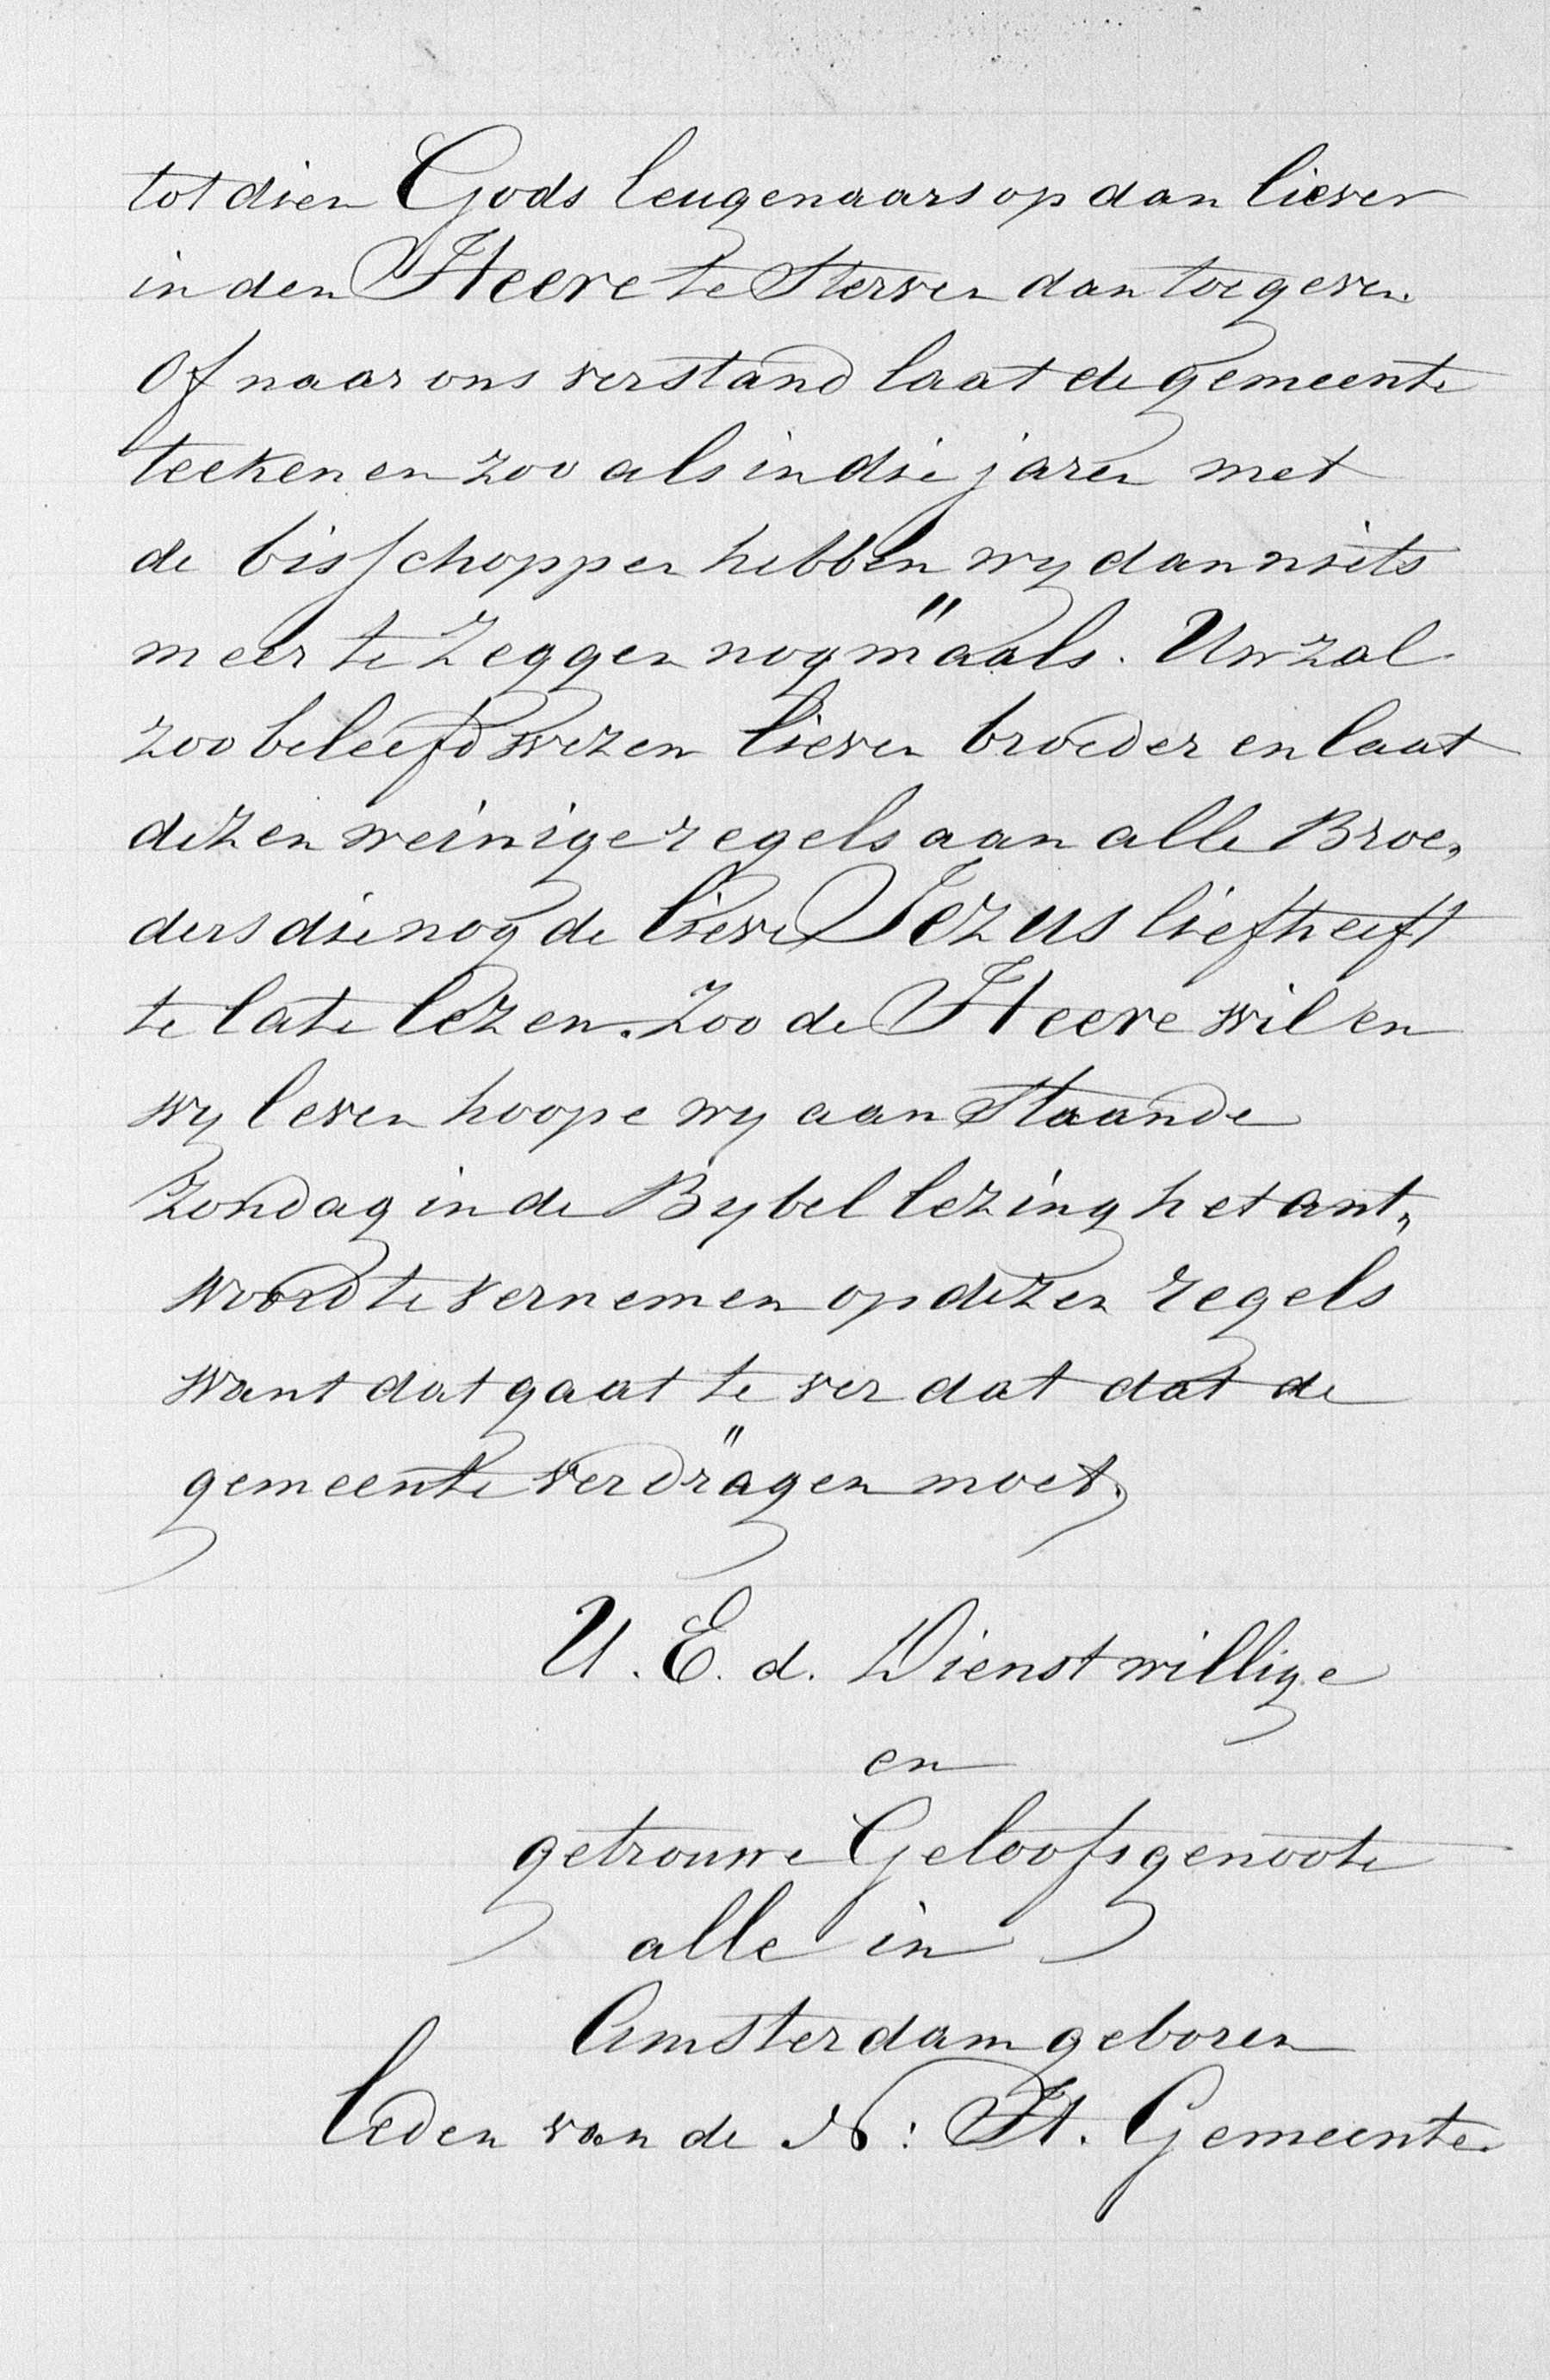 tot dien Gods leugenaars op dan liever
in den Heere te sterven dan toegeven.
Of naar ons verstand laat de gemeente
teekenen zoo als in die jaren met
de bisschoppen hebben wy dan niets
meer te zeggen nog"maals. Uw zal
zoo beleefd wezen lieven broeder en laat
dezen weinige regels aan alle Broe„
ders die nog de lieve Jezus lief heeft
te late lezen. Zoo de Heere wil en
wy leven hoope wy aanstaande
Zondag in de Bybel lezing het ant„
woord te vernemen op dezen regels
want dat gaat te ver dat dat de
gemeente ver"dragen moet.
U. E. d. Dienstwillige
en
getrouwe Geloofsgenoote
alle in
Amsterdam geboren
leden van de N: H. Gemeente.